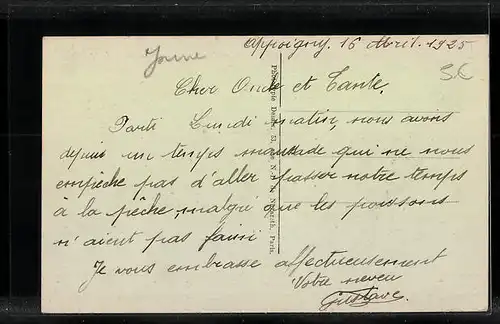 Yonne
Appoigny. 16 Avril. 1925
S.C
Cher Oncle et Tante,
Parti Lundi matin, nous avons
depuis un temps maussade qui ne nous
empêche pas d'aller passer notre temps
à la pêche, malgré que les poissons
n'aient pas faim
Je vous embrasse affectueusement
Votre neveu
Gustave.
Paris.